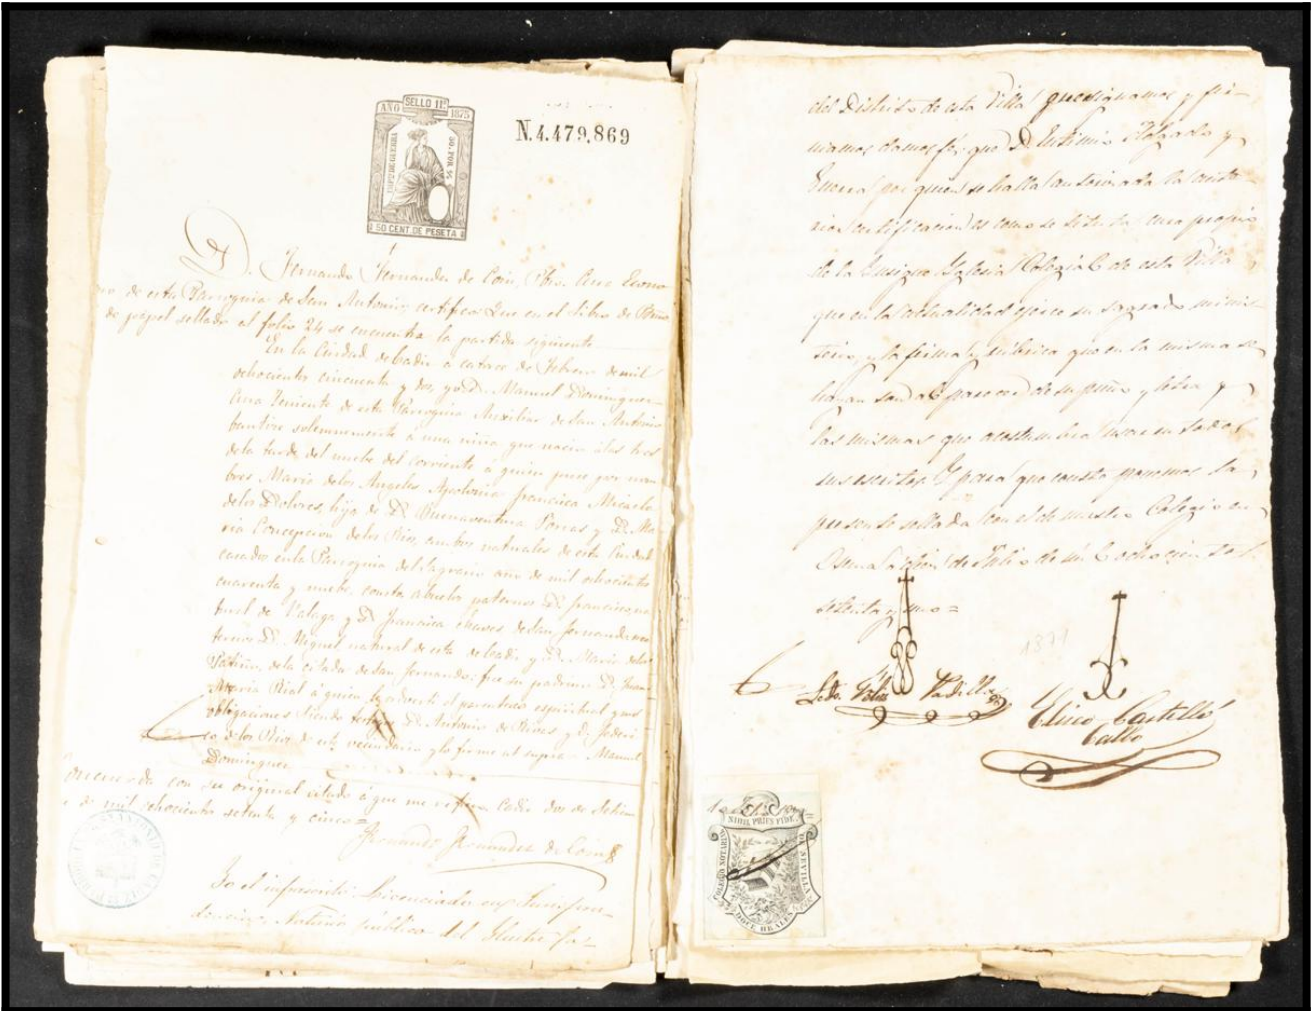 AÑO SELLO 11º 1875
IMPº DE GUERRA
50 POR %
50 CENT. DE PESETA
N.4.479,869
D. Fernando Fernandez de Coin, Pbro. Cura Econo
mo de esta Parroquia de San Antonio certifico: Que en el libro de
de papel sellado al folio 24 se encuentra la partida siguiente
En la Ciudad de Cadiz a catorce de Febrero de mil
ochocientos cincuenta y dos, yo D. Manuel Dominguez
Cura Teniente de esta Parroquia Auxiliar de San Antonio
bautize solemnemente á una niña que nacio á las tres
de la tarde del nueve del corriente á quien puse por nom
bres Maria de los Angeles Apolonia Francisca Micaela
de los Dolores, hija de D. Buenaventura Porras y Dª Ma
ria Concepcion de los Rios, ambos naturales de esta Ciudad
casados en la Parroquia del Sagrario año de mil ochocientos
cuarenta y nueve. consta abuelos paternos D. Francisco, na
tural de Malaga y Dª Francisca Chaves de San Fernando, ma
ternos D. Miguel natural de esta de Cadiz y Dª Maria de los
de la citada de San Fernando: fue su padrino D. Juan
Maria Rial á quien le adverti el parentesco espiritual y sus
obligaciones siendo testigos D. Antonio de Rivas y D. Federi
co de los Rios de este vecindario y lo firme ut supra = Manuel
Dominguez
Concuerda con su original citado á que me refiero. Cadiz dos de Setiem
e de mil ochocientos setenta y cinco =
Fernando Fernandez de Coin
Yo el infrascrito Licenciado en Jurispru-
dencia, Notario público del Ilustre Co-
del Distrito de esta Villa que signamos y fir-
mamos damos fé: que D. Antonio y
Guerra por quien se halla autorizada la ante-
rior certificacion es como se titula cura propio
de la Insigne Yglesia Colegial de esta Villa
que en la actualidad ejerce su sagrado minis-
terio, y la firma y rúbrica que en la misma se
hayan son al parecer de su puño y letra y
las mismas que acostumbra usar en todos
sus escritos. Y para que conste ponemos la
presente sellada con el de nuestro Colegio en
Osuna á de Julio de mil ochocientos
setenta y uno =
1871
Ldo.
Eliseo Castelló
Calbo
NIHIL PRIUS FIDE.
COLEGIO NOTARIAL
SEVILLA
DOCE REALES